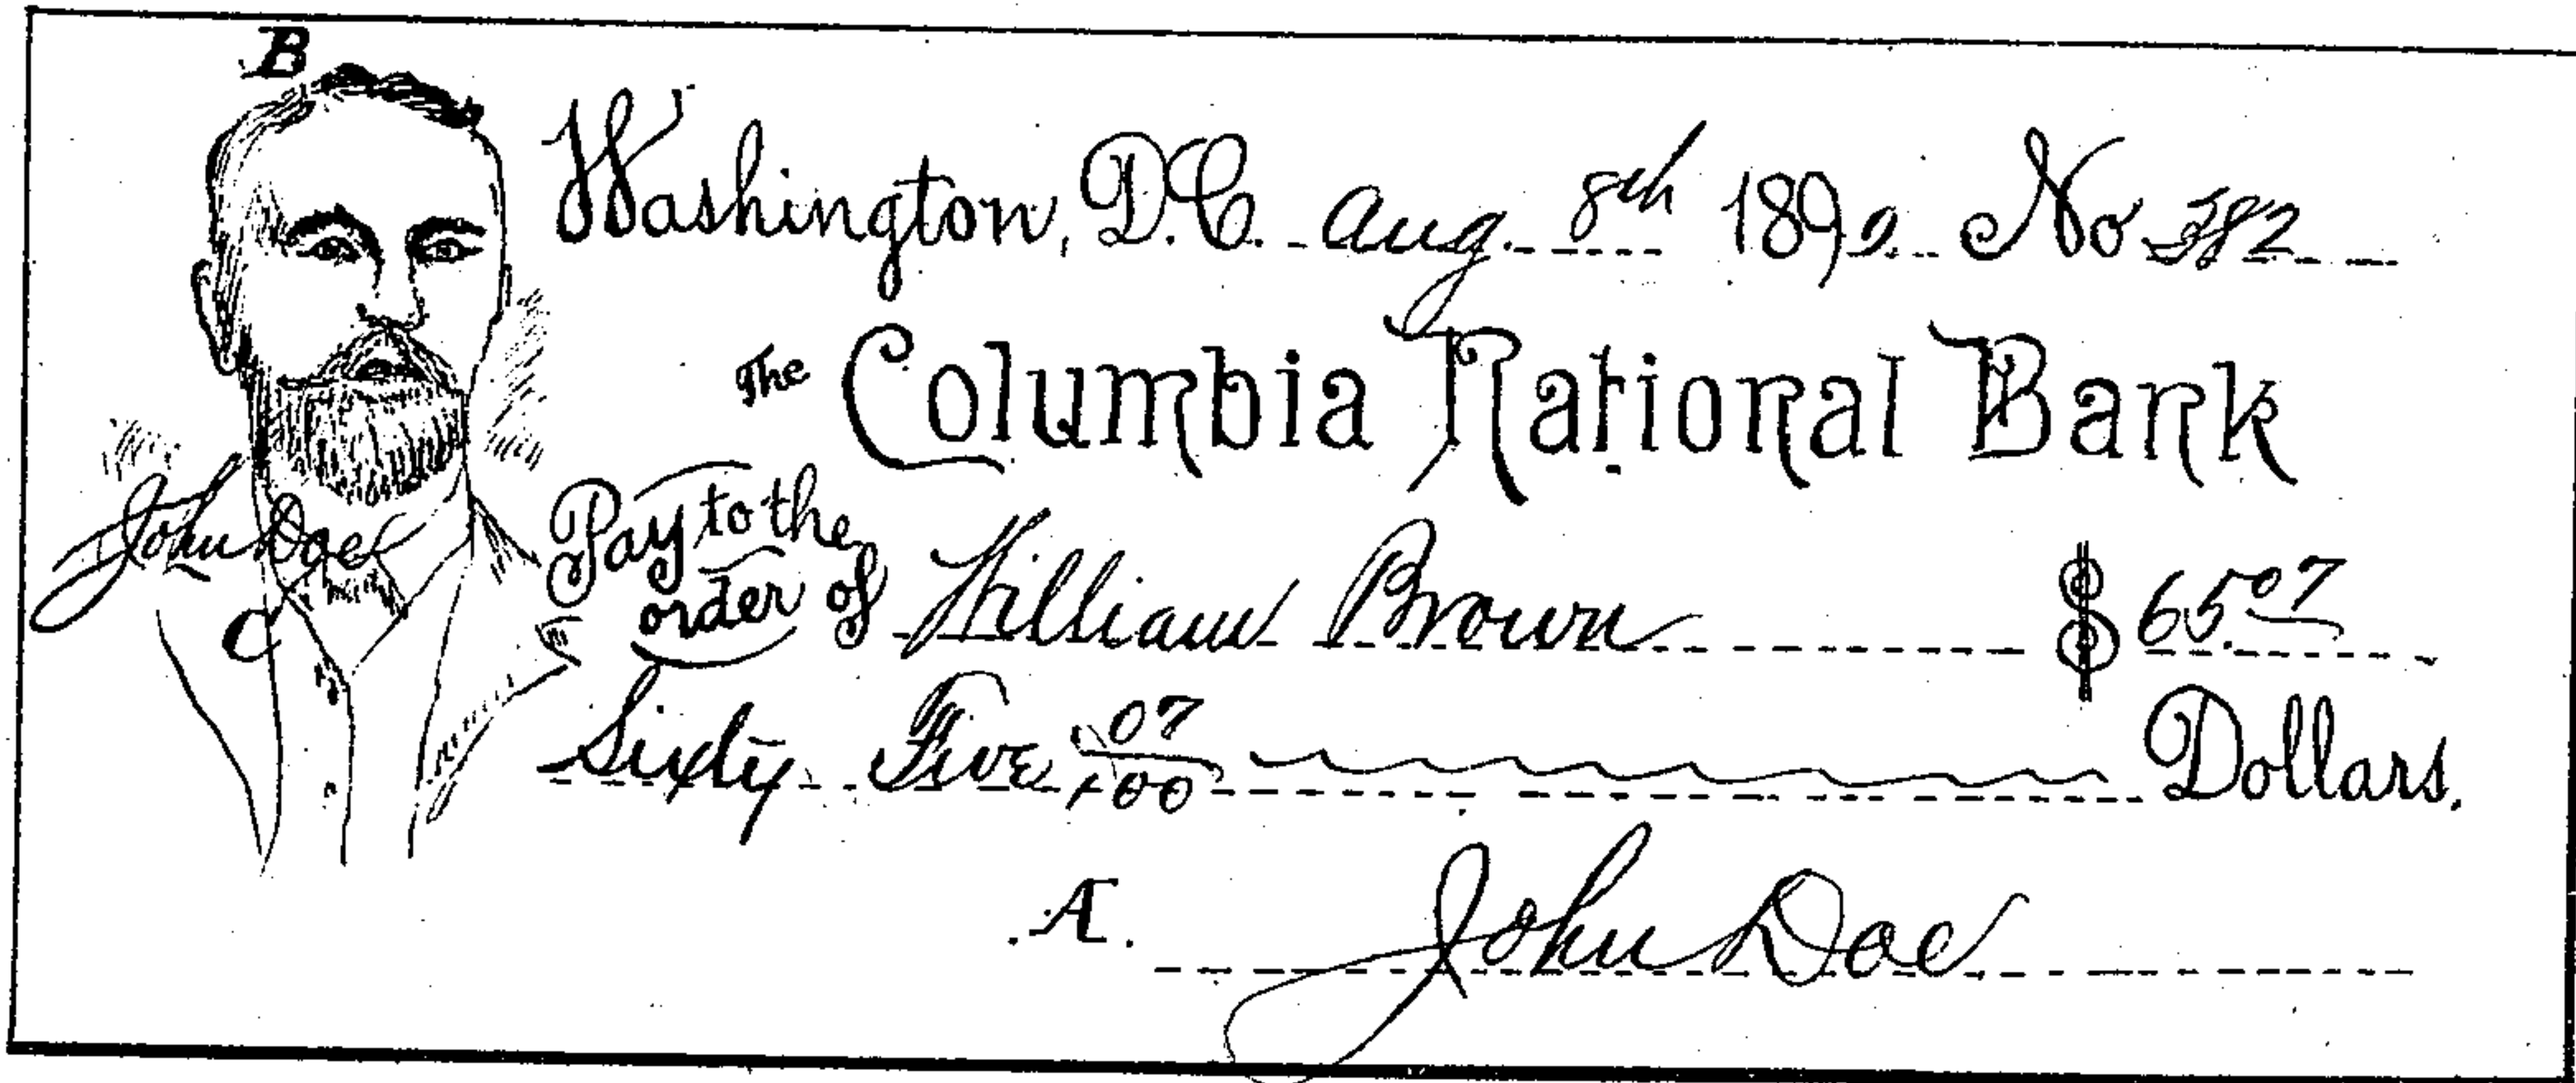 B
Washington, D.C. Aug. 8th 189 No 382
The Columbia National Bank
John Doe
C
Pay to the
order of William Brown $ 65.07
Sixty Five 07/100 Dollars.
A. John Doe